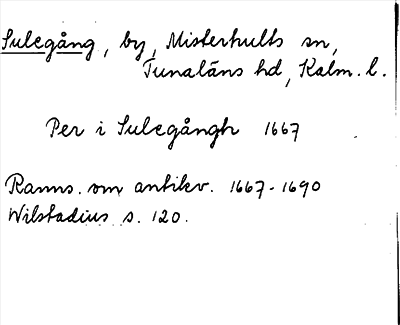 Sulegång, by, Misterhults sn,
Tunaläns hd, Kalm. l.
Per i Sulegångh 1667
Ranns. om antikv. 1667-1690
Wilstadius s. 120.